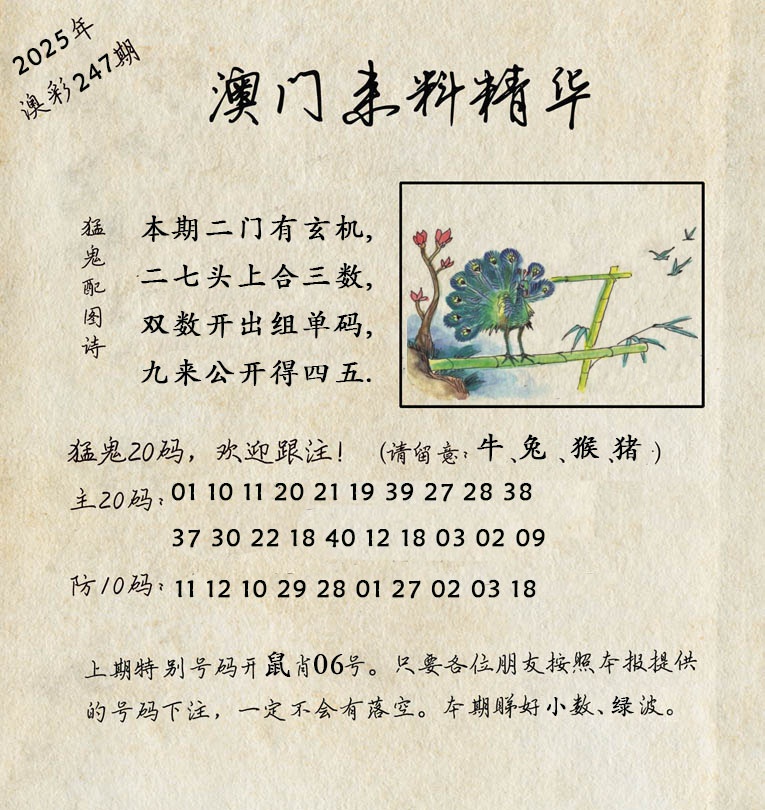 2025年
澳彩247期
澳门来料精华
猛鬼配图诗
本期二门有玄机,
二七头上合三数,
双数开出组单码,
九来公开得四五.
猛鬼20码，欢迎跟注！（请留意：牛、兔、猴、猪）
主20码：01 10 11 20 21 19 39 27 28 38
37 30 22 18 40 12 18 03 02 09
防10码：11 12 10 29 28 01 27 02 03 18
上期特别号码开鼠肖06号。只要各位朋友按照本报提供
的号码下注，一定不会有落空。本期睇好小数、绿波。